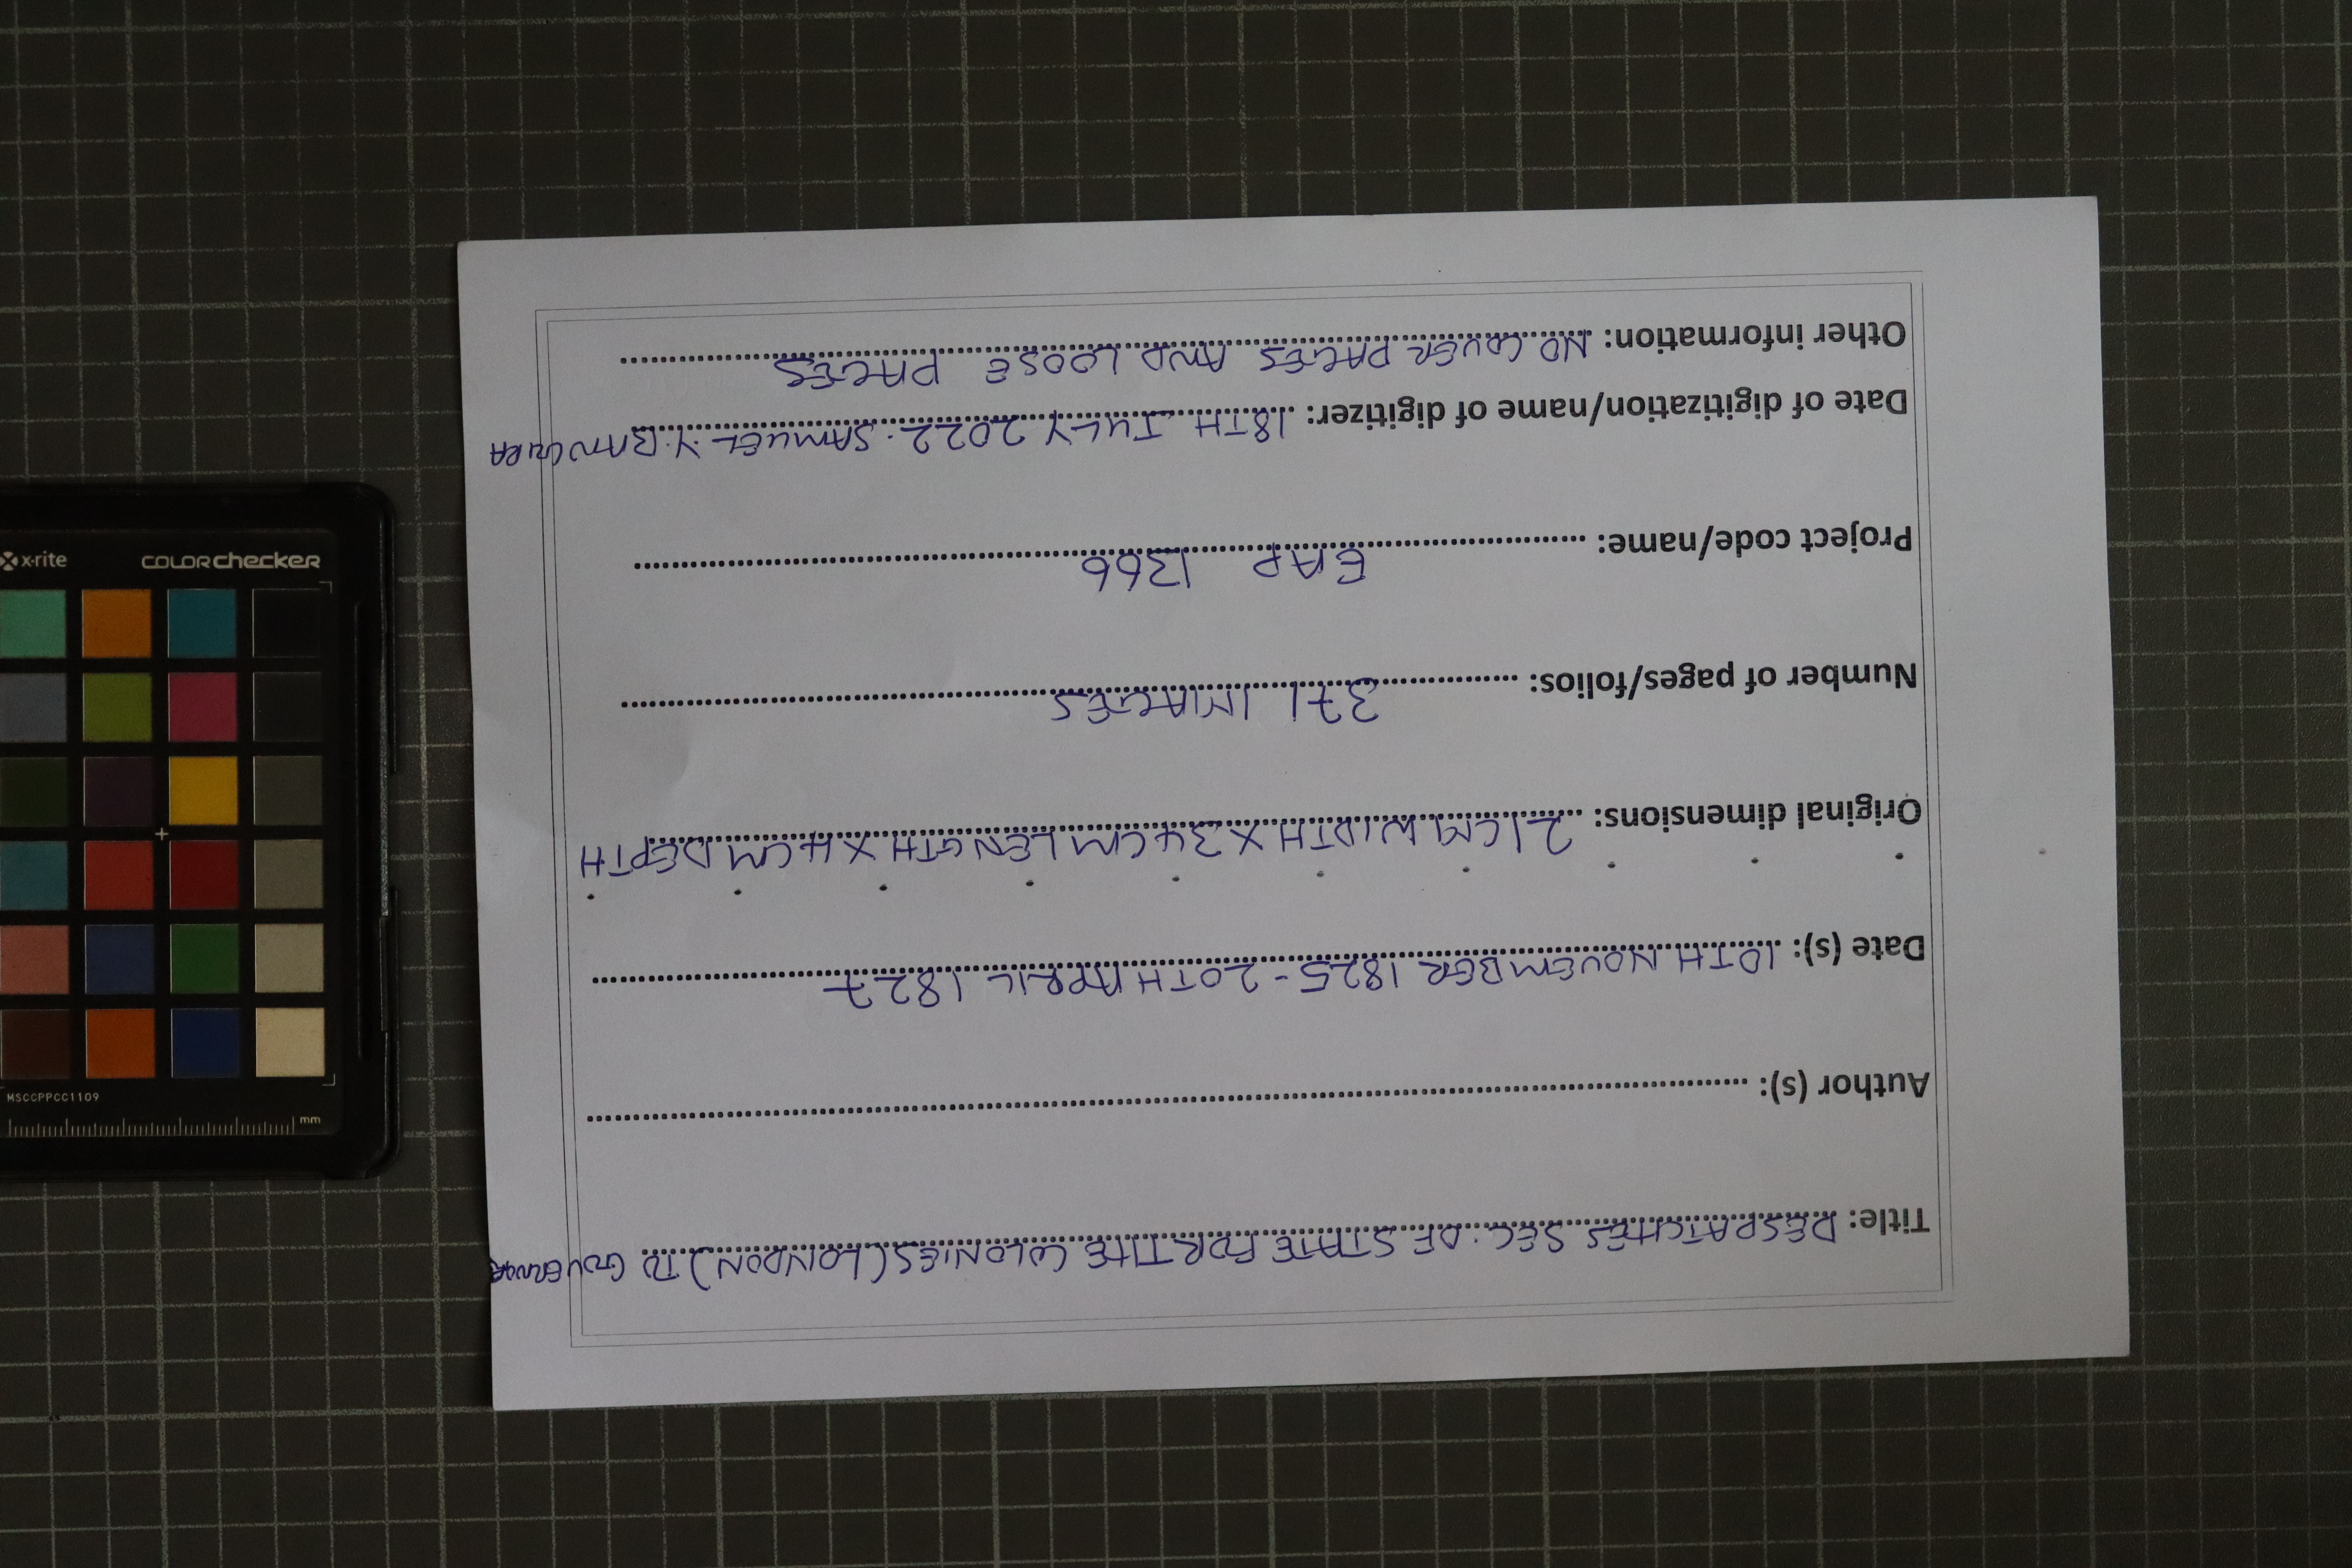 Title: DESPATCHES SEC. OF STATE FOR THE COLONIES (LONDON) TO GOVERNOR
Author (s):
Date (s): 10TH NOVEMBER 1825 - 20TH APRIL 1827
Original dimensions: 21CM WIDTH X 34CM LENGTH X 4CM DEPTH
Number of pages/folios: 371 IMAGES
Project code/name: EAP 1366
Date of digitization/name of digitizer: 18TH JULY 2022. SAMUEL Y. BANGURA
Other information: NO COVER PAGES AND LOOSE PAGES
x-rite colorchecker
MSCCPPCC1109
mm